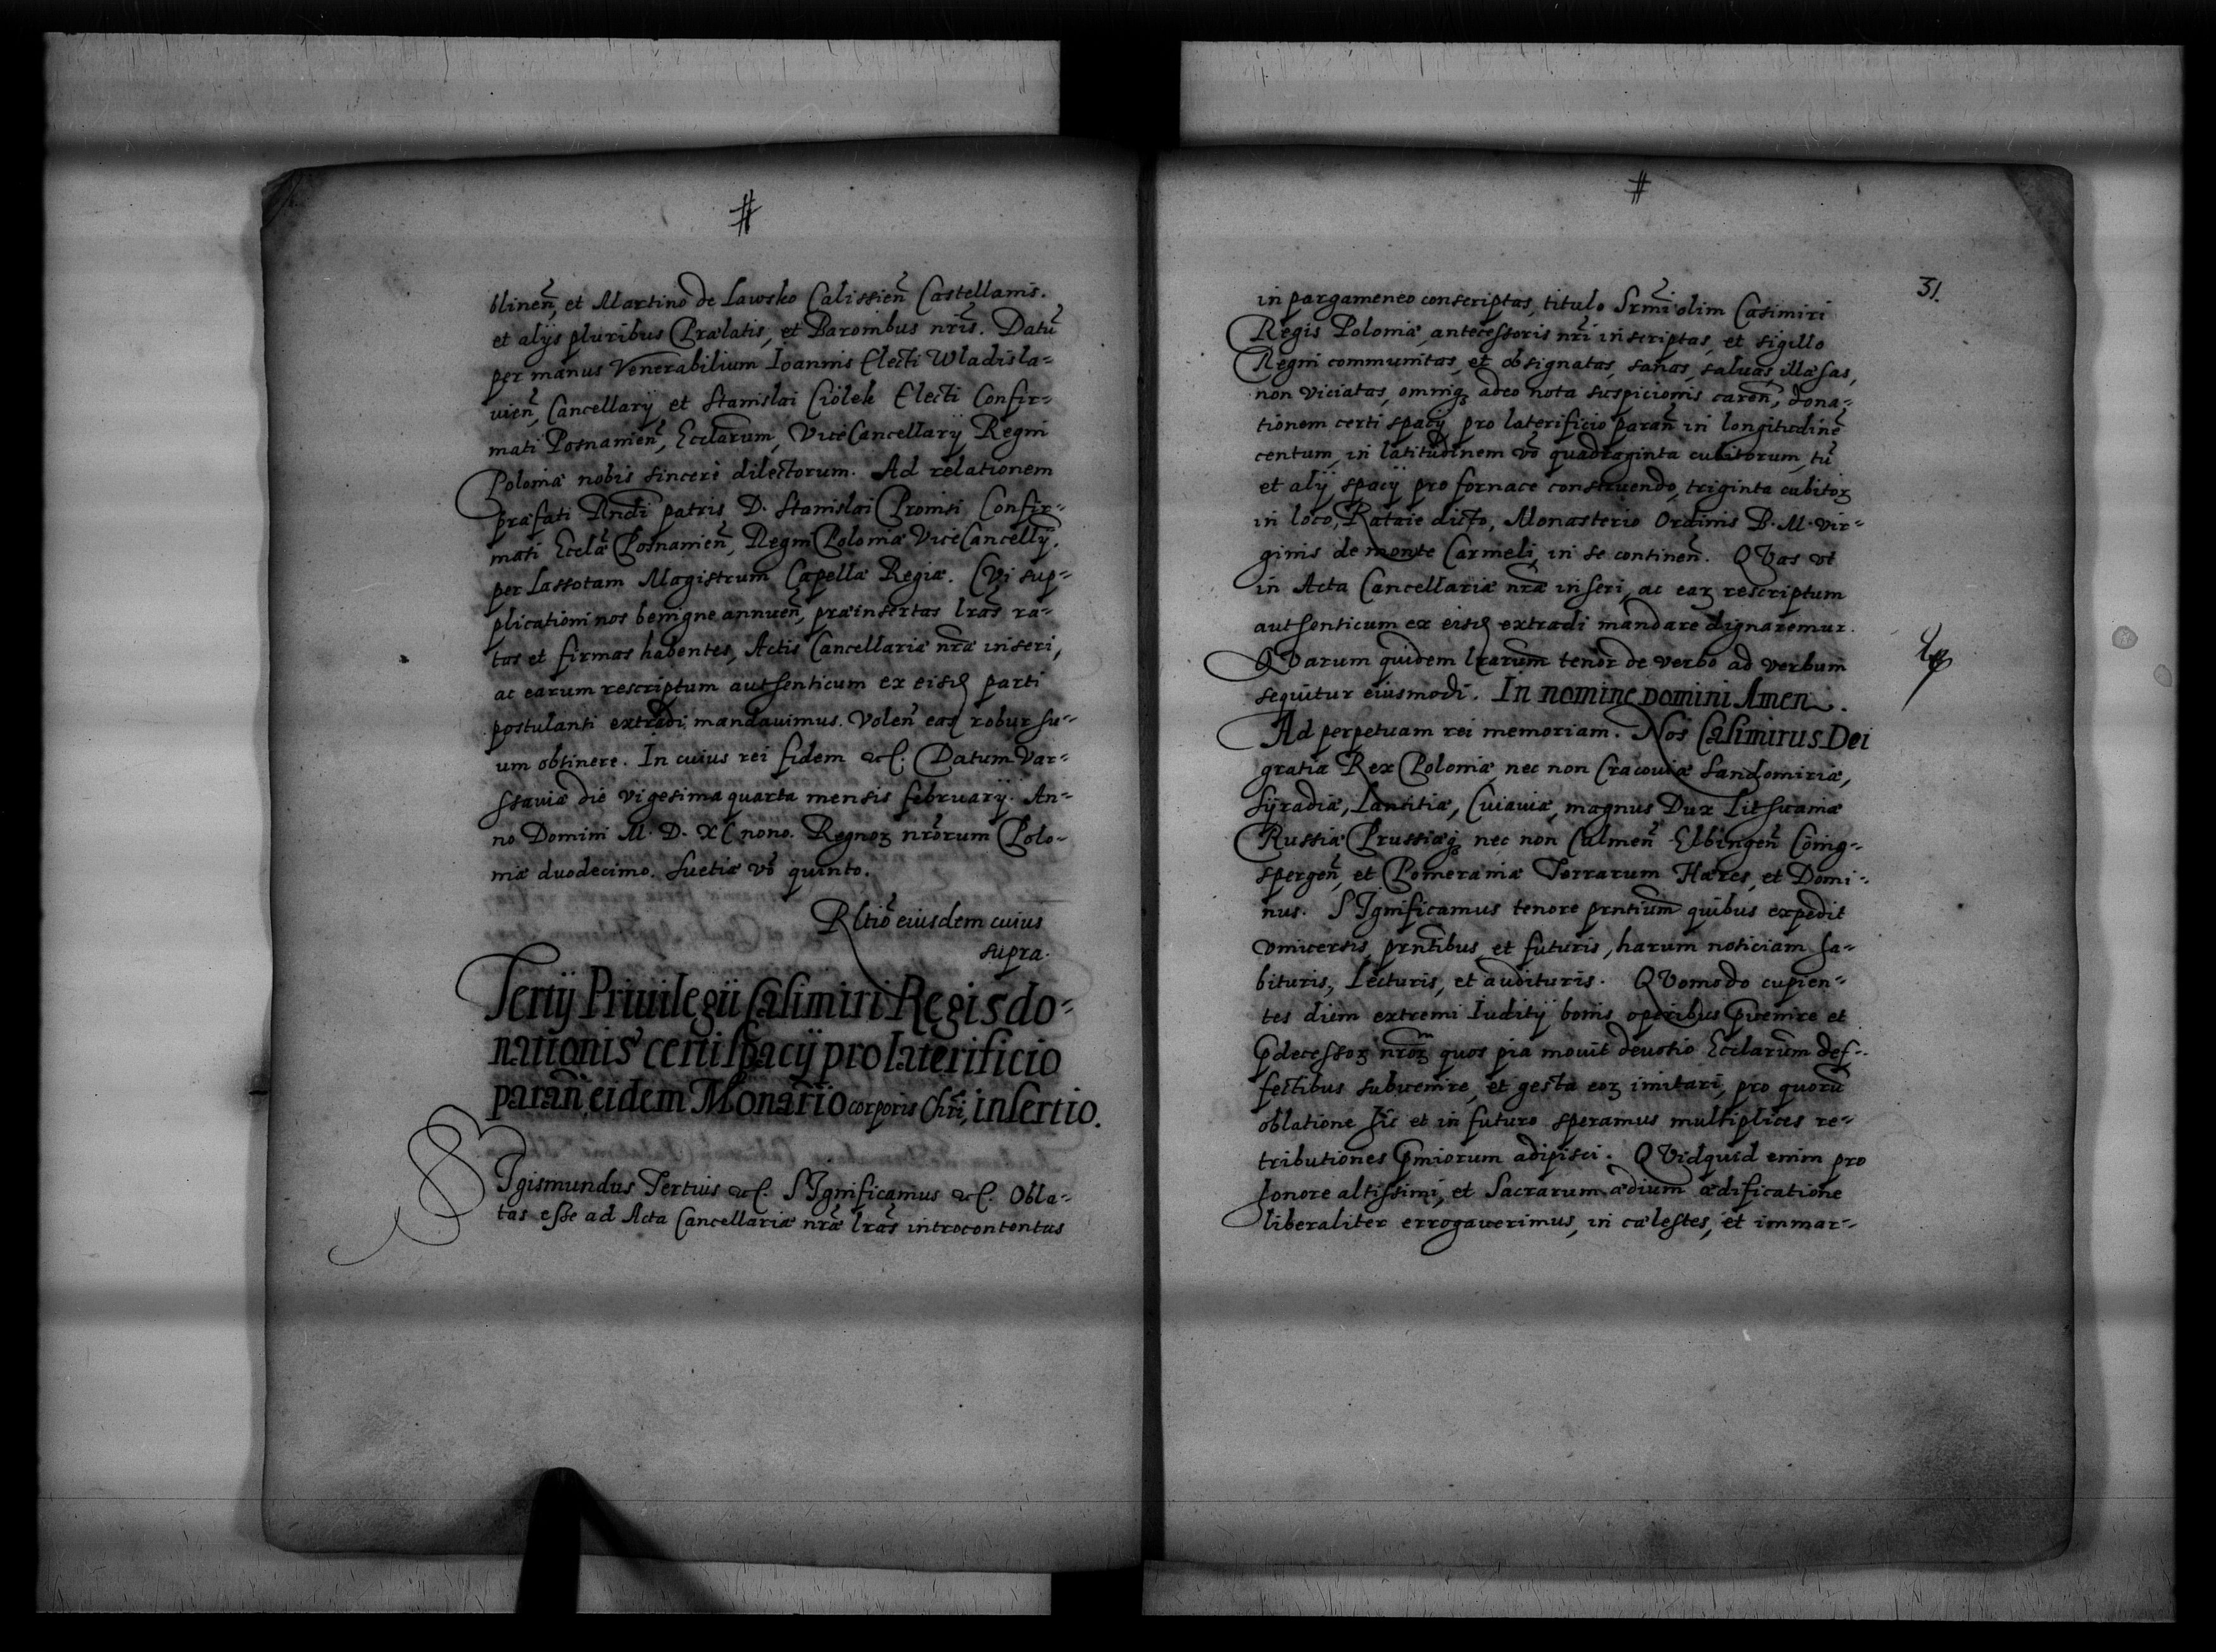 #
blineñ, et Martino de Lawsko Calissieñ Castellanis.
et alijs pluribus Prælatis, et Baronibus nr̃is. Datũ
per manus Venerabilium Ioannis Electi Wladisla=
uieñ, Cancellarij et Stanislai Ciołek Electi Confir=
mati Posnanieñ, Ecclarum, ViceCancellarij Regni
Poloniæ nobis sinceri dilectorum. Ad relationem
præfati Rndi patris D. Stanislai Promisi Confir=
mati Ecclæ Posnanieñ, Regni Poloniæ ViceCancellij.
per Lassotam Magistrum Capellæ Regiæ. CVi sup=
plicationi nos benigne annueñ, præinsertas lr̃as ra=
tas et firmas habentes, Actis Cancellariæ nr̃æ inseri,
ac earum rescriptum authenticum ex eisd parti
postulanti extradi mandauimus. Voleñ eas robur su=
um obtinere. In cuius rei fidem &c. Datum Var=
ssauiæ die vigesima quarta mensis february. An=
no Domini M. D. XC nono. Regnoꝝ nr̃orum Polo=
niæ duodecimo. Suetiæ vō quinto.
Rltiõ eiusdem cuius
supra.
Tertij Priuilegii Casimiri Regis do=
nationis certi spacij pro laterificio
parañ, eidem Monar̃io corporis Chr̃i, insertio.
SIgismundus Tertius &c. SIgnificamus &c. Obla=
tas esse ad Acta Cancellariæ nr̃æ lr̃as introcontentas
#
31.
in pargameneo conscriptas, titulo Sr̃mi olim Casimiri
Regis Poloniæ, antecessoris nr̃i inscriptas, et sigillo
Regni communitas, et obsignatas, sanas, saluas, illæsas,
non viciatas, omniqꝫ adeo nota suspicionis careñ, dona=
tionem certi spacij pro laterificio parañ in longitudinẽ
centum, in latitudinem vō quadraginta cubitorum, tũ
et alij spacij pro fornace construendo, triginta cubitoꝝ
in loco, Rataie dicto, Monasterio Ordinis B. M. Vir=
ginis de monte Carmeli, in se contineñ. QVas vt
in Acta Cancellariæ nr̃æ inseri, ac eaꝝ rescriptum
authenticum ex eisd extradi mandare dignaremur.
QVarum quidem lrarum tenor de verbo ad verbum
sequitur eiusmodi. In nomine Domini Amen.
Ad perpetuam rei memoriam. Nos Casimirus Dei
gratia Rex Poloniæ, nec non Cracouiæ Sandomiriæ,
Syradiæ, Lantitiæ, Cuiauiæ, magnus Dux Lithuaniæ
Russiæ Prussiæqꝫ nec non Culmeñ Elbingeñ Cönig=
spergeñ, et Pomeraniæ Terrarum Hæres, et Domi=
nus. SIgnificamus tenore prntium quibus expedit
vniuersis, prntibus, et futuris, harum noticiam ha=
bituris, Lecturis, et audituris. QVomodo cupien=
tes diem extremi Iuditij bonis operibus p̃uenire et
p̃decessoꝝ nr̃oꝝ quos pia mouit deuotio Ecclarum def=
fectibus subuenire, et gesta eoꝝ imitari, pro quorũ
oblatione hic et in futuro speramus multiplices re=
tributiones p̃miorum adipisci. QVidquid enim pro
honore altissimi, et Sacrarum ædium ædificatione
liberaliter errogauerimus, in cælestes, et immar=